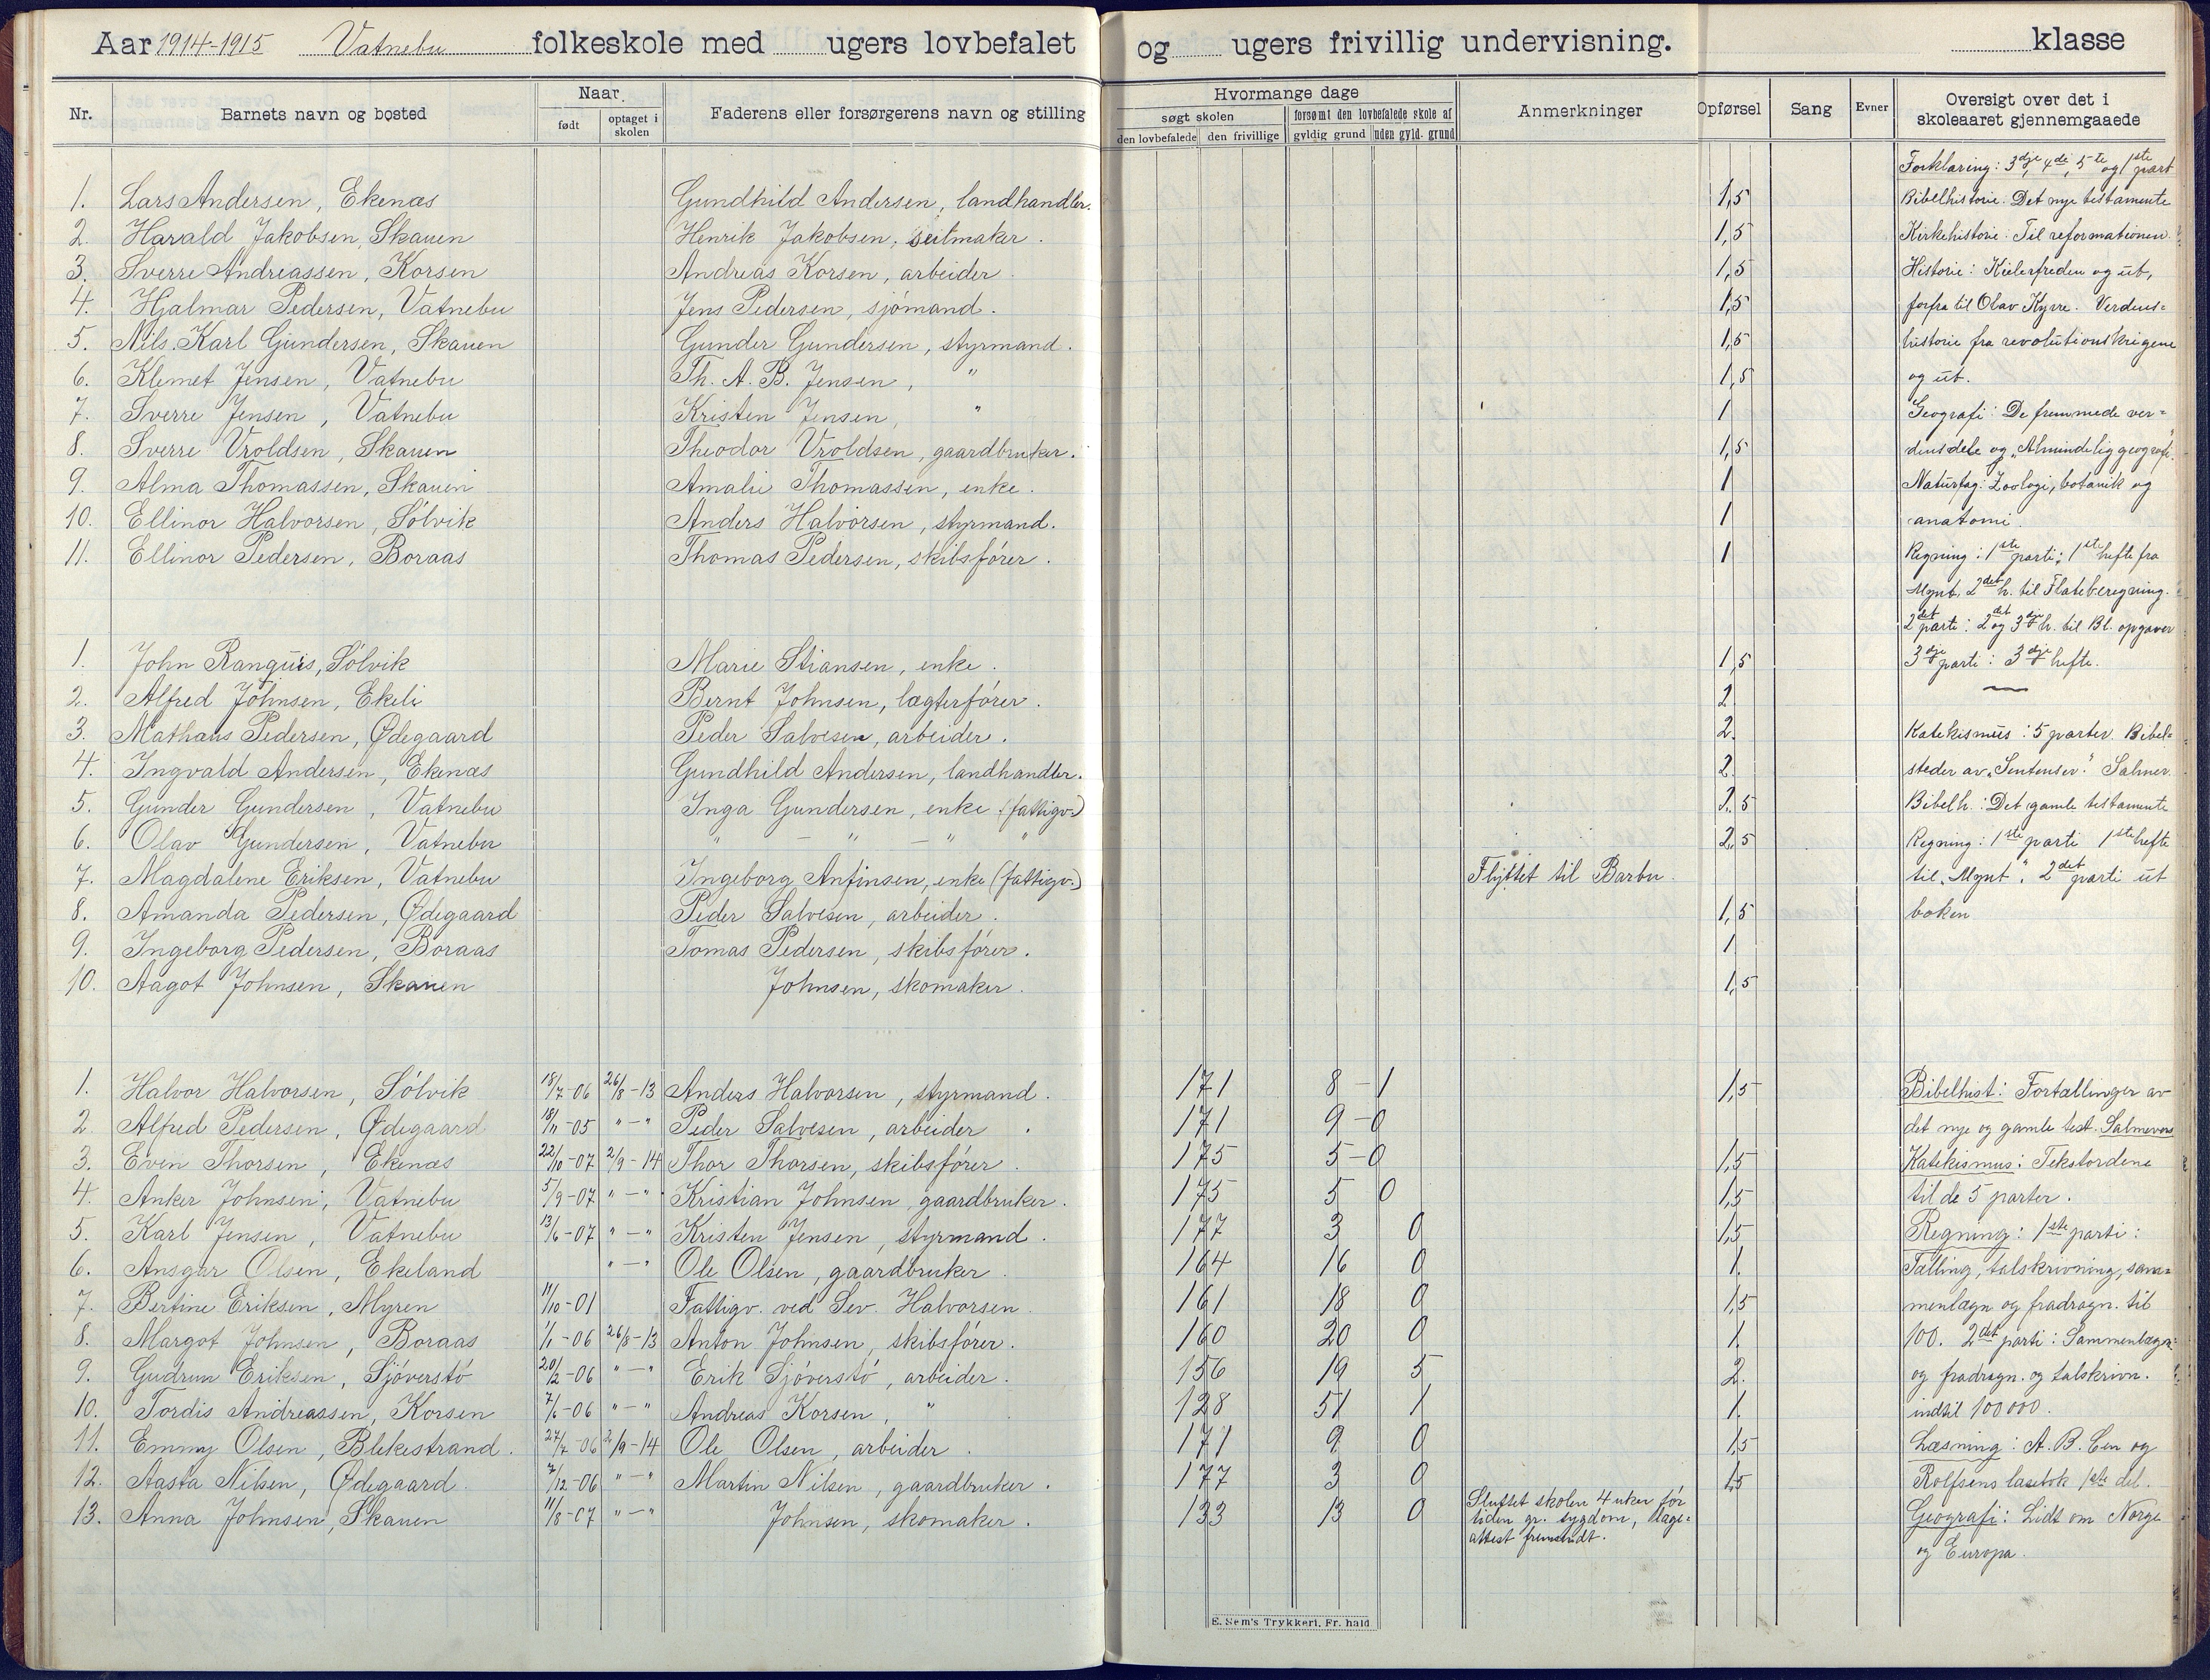 Aar 1914-1915 Vatnebu folkeskole med ugers lovbefalet og ugers frivillig undervisning. klasse
Nr. Barnets navn og bosted Naar Faderens eller forsørgerens navn og stilling Hvormange dage Anmerkninger Opførsel Sang Evner Oversigt over det i skoleaaret gjennemgaaede
født optaget i skolen søgt skolen forsømt den lovbefalede skole af
den lovbefalede den frivillige gyldig grund uden gyld. grund
1. Lars Andersen, Ekenæs Gundhild Andersen, landhandler. 1,5
2. Harald Jakobsen, Skauen Henrik Jakobsen, seilmaker. 1,5
3. Sverre Andreassen, Korsen Andreas Korsen, arbeider. 1,5
4. Hjalmar Pedersen, Vatnebu Jens Pedersen, sjömand. 1,5
5. Nils Karl Gundersen, Skauen Gunder Gundersen, styrmand. 1,5
6. Klemet Jensen, Vatnebu Th. A. B. Jensen, " 1,5
7. Sverre Jensen, Vatnebu Kristen Jensen, " 1
8. Sverre Vroldsen, Skauen Theodor Vroldsen, gaardbruker. 1,5
9. Alma Thomassen, Skauen Amalie Thomassen, enke. 1
10. Ellinor Halvorsen, Sölvik Anders Halvorsen, styrmand. 1
11. Ellinor Pedersen, Boraas Thomas Pedersen, skibsförer. 1
Forklaring: 3dje, 4de, 5te og 1ste part
Bibelhistorie. Det nye testamente
Kirkehistorie: Til reformationen.
Historie: Kielerfreden og ut,
forfra til Olav Kyrre. Verdens=
historie fra revolutionskrigene
og ut.
Geografi: De fremmede ver=
densdele og "Almindelig geografi".
Naturfag: Zoologi, botanik og
anatomi.
Regning: 1ste parti: 1ste hefte fra
Mynt. 2det h. til Flateberegning.
2det parti: 2det og 3dje h. til Bl. opgaver
3dje parti: 3dje hefte.
1. John Ranguis, Sölvik Marie Stiansen, enke. 1,5
2. Alfred Johnsen, Ekeli Bernt Johnsen, lægterförer. 2
3. Mathæus Pedersen, Ødegaard Peder Salvesen, arbeider. 2.
4. Ingvald Andersen, Ekenæs Gundhild Andersen, landhandler. 2.
5. Gunder Gundersen, Vatnebu Inga Gundersen, enke (fattigv.) 2,5
6. Olav Gundersen, Vatnebu " — " — " " 2,5
7. Magdalene Eriksen, Vatnebu Ingeborg Anfinsen, enke (fattigv.) Flyttet til Barbu.
8. Amanda Pedersen, Ødegaard Peder Salvesen, arbeider. 1,5
9. Ingeborg Pedersen, Boraas Tomas Pedersen, skibsförer. 1
10. Aagot Johnsen, Skauen Johnsen, skomaker. 1,5
Katekismus: 5 parter. Bibel=
steder av "Sentenser." Salmer.
Bibelh.: Det gamle testamente
Regning: 1ste parti 1ste hefte
til "Mynt". 2det parti ut
boken
1. Halvor Halvorsen, Sölvik 18/7-06 26/8-13 Anders Halvorsen, styrmand. 171 8 - 1 1,5
2. Alfred Pedersen, Ødegaard 18/11-05 " - " Peder Salvesen, arbeider. 171 9 - 0
3. Even Thorsen, Ekenæs 22/10-07 2/9-14 Thor Thorsen, skibsförer. 175 5 - 0 1,5
4. Anker Johnsen, Vatnebu 5/9-07 " - " Kristian Johnsen, gaardbruker. 175 5 0 1,5
5. Karl Jensen, Vatnebu 13/6-07 " - " Kristen Jensen, styrmand. 177 3 0 1,5
6. Ansgar Olsen, Ekeland " - " Ole Olsen, gaardbruker. 164 16 0 1.
7. Bertine Eriksen, Myren 11/10-01 Fattigv. ved Sev. Halvorsen. 161 18 0 1,5
8. Margot Johnsen, Boraas 1/1-06 26/8-13 Anton Johnsen, skibsförer. 160 20 0 1.
9. Gudrun Eriksen, Sjöverstö 20/2-06 " - " Erik Sjöverstö, arbeider. 156 19 5 2.
10. Tordis Andreassen, Korsen 7/6-06 " - " Andreas Korsen, " 128 51 1 1.
11. Emmy Olsen, Blekestrand. 27/7-06 2/9-14 Ole Olsen, arbeider. 171 9 0 1,5
12. Aasta Nilsen, Ødegaard. 7/12-06 " - " Martin Nilsen, gaardbruker. 177 3 0 1,5
13. Anna Johnsen, Skauen 11/8-07 " - " Johnsen, skomaker. 133 13 0 Sluttet skolen 4 uker før
tiden gr. sygdom, læge=
attest fremsendt.
Bibelhist: Fortællinger av
det nye og gamle test. Salmevers
Katekismus: Tekstordene
til de 5 parter.
Regning: 1ste parti:
Tælling, talskrivning, sam=
menlægn og fradragn. til
100. 2det parti: Sammenlægn.
og fradragn. og talskrivn.
indtil 100000.
Læsning: A. B. Cen og
Rolfsens læsebok 1ste del.
Geografi: Lidt om Norge
og Europa.
E. Sem's Trykkeri, Fr. hald